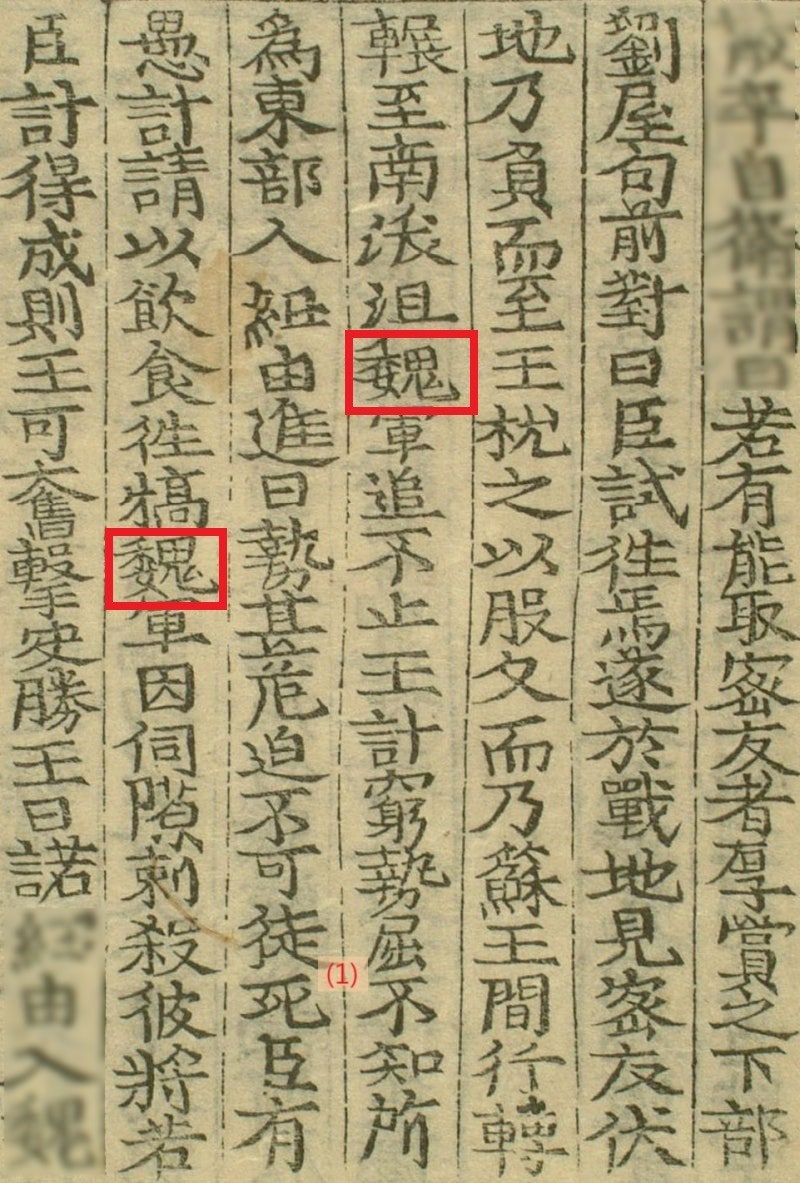 若有能取密友者厚賞之下部
劉屋句前對曰臣試徃焉遂於戰地見密友伏
地乃負而至王枕之以股久而乃蘇王間行轉
輾至南沃沮魏軍追不止王計窮勢屈不知所
(1)
為東部人紐由進曰勢甚危迫不可徒死臣有
愚計請以飮食徃犒魏軍因伺隙刺殺彼將若
臣計得成則王可奮擊決勝王曰諾